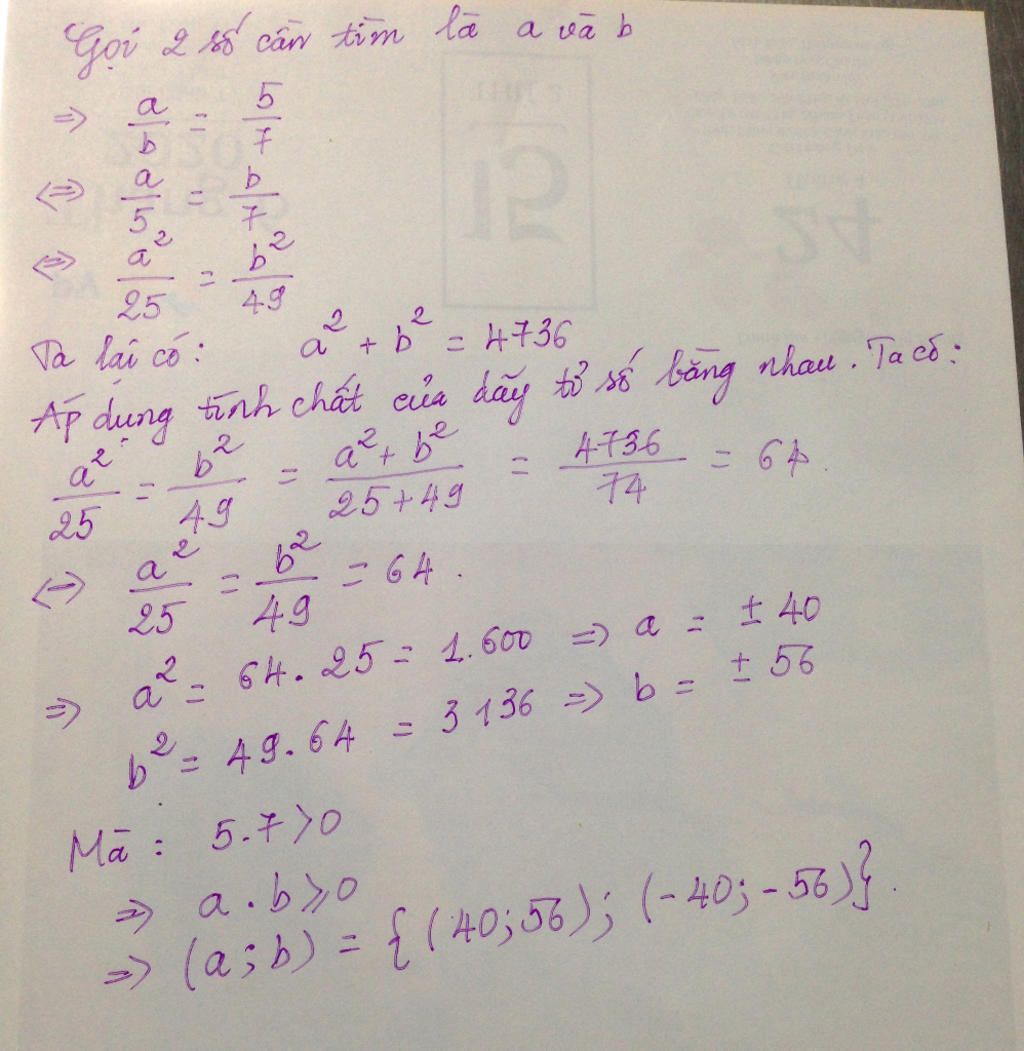 Gọi 2 số cần tìm là a và b
=> a/b = 5/7
<=> a/5 = b/7
<=> a²/25 = b²/49
Ta lại có: a² + b² = 4736
Áp dụng tính chất của dãy tỉ số bằng nhau. Ta có:
a²/25 = b²/49 = (a² + b²)/(25 + 49) = 4736/74 = 64.
<=> a²/25 = b²/49 = 64.
=> a² = 64.25 = 1.600 => a = ± 40
b² = 49.64 = 3136 => b = ± 56
Mà: 5.7 > 0
=> a.b ⩾ 0
=> (a;b) = {(40;56); (-40;-56)}.